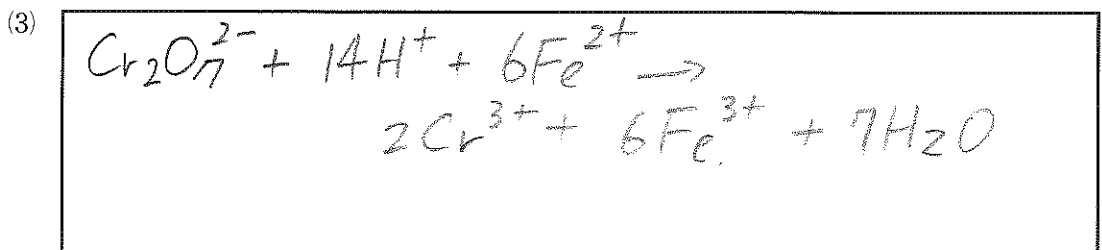 (3)
Cr₂O₇²⁻ + 14H⁺ + 6Fe²⁺ →
2Cr³⁺ + 6Fe³⁺ + 7H₂O